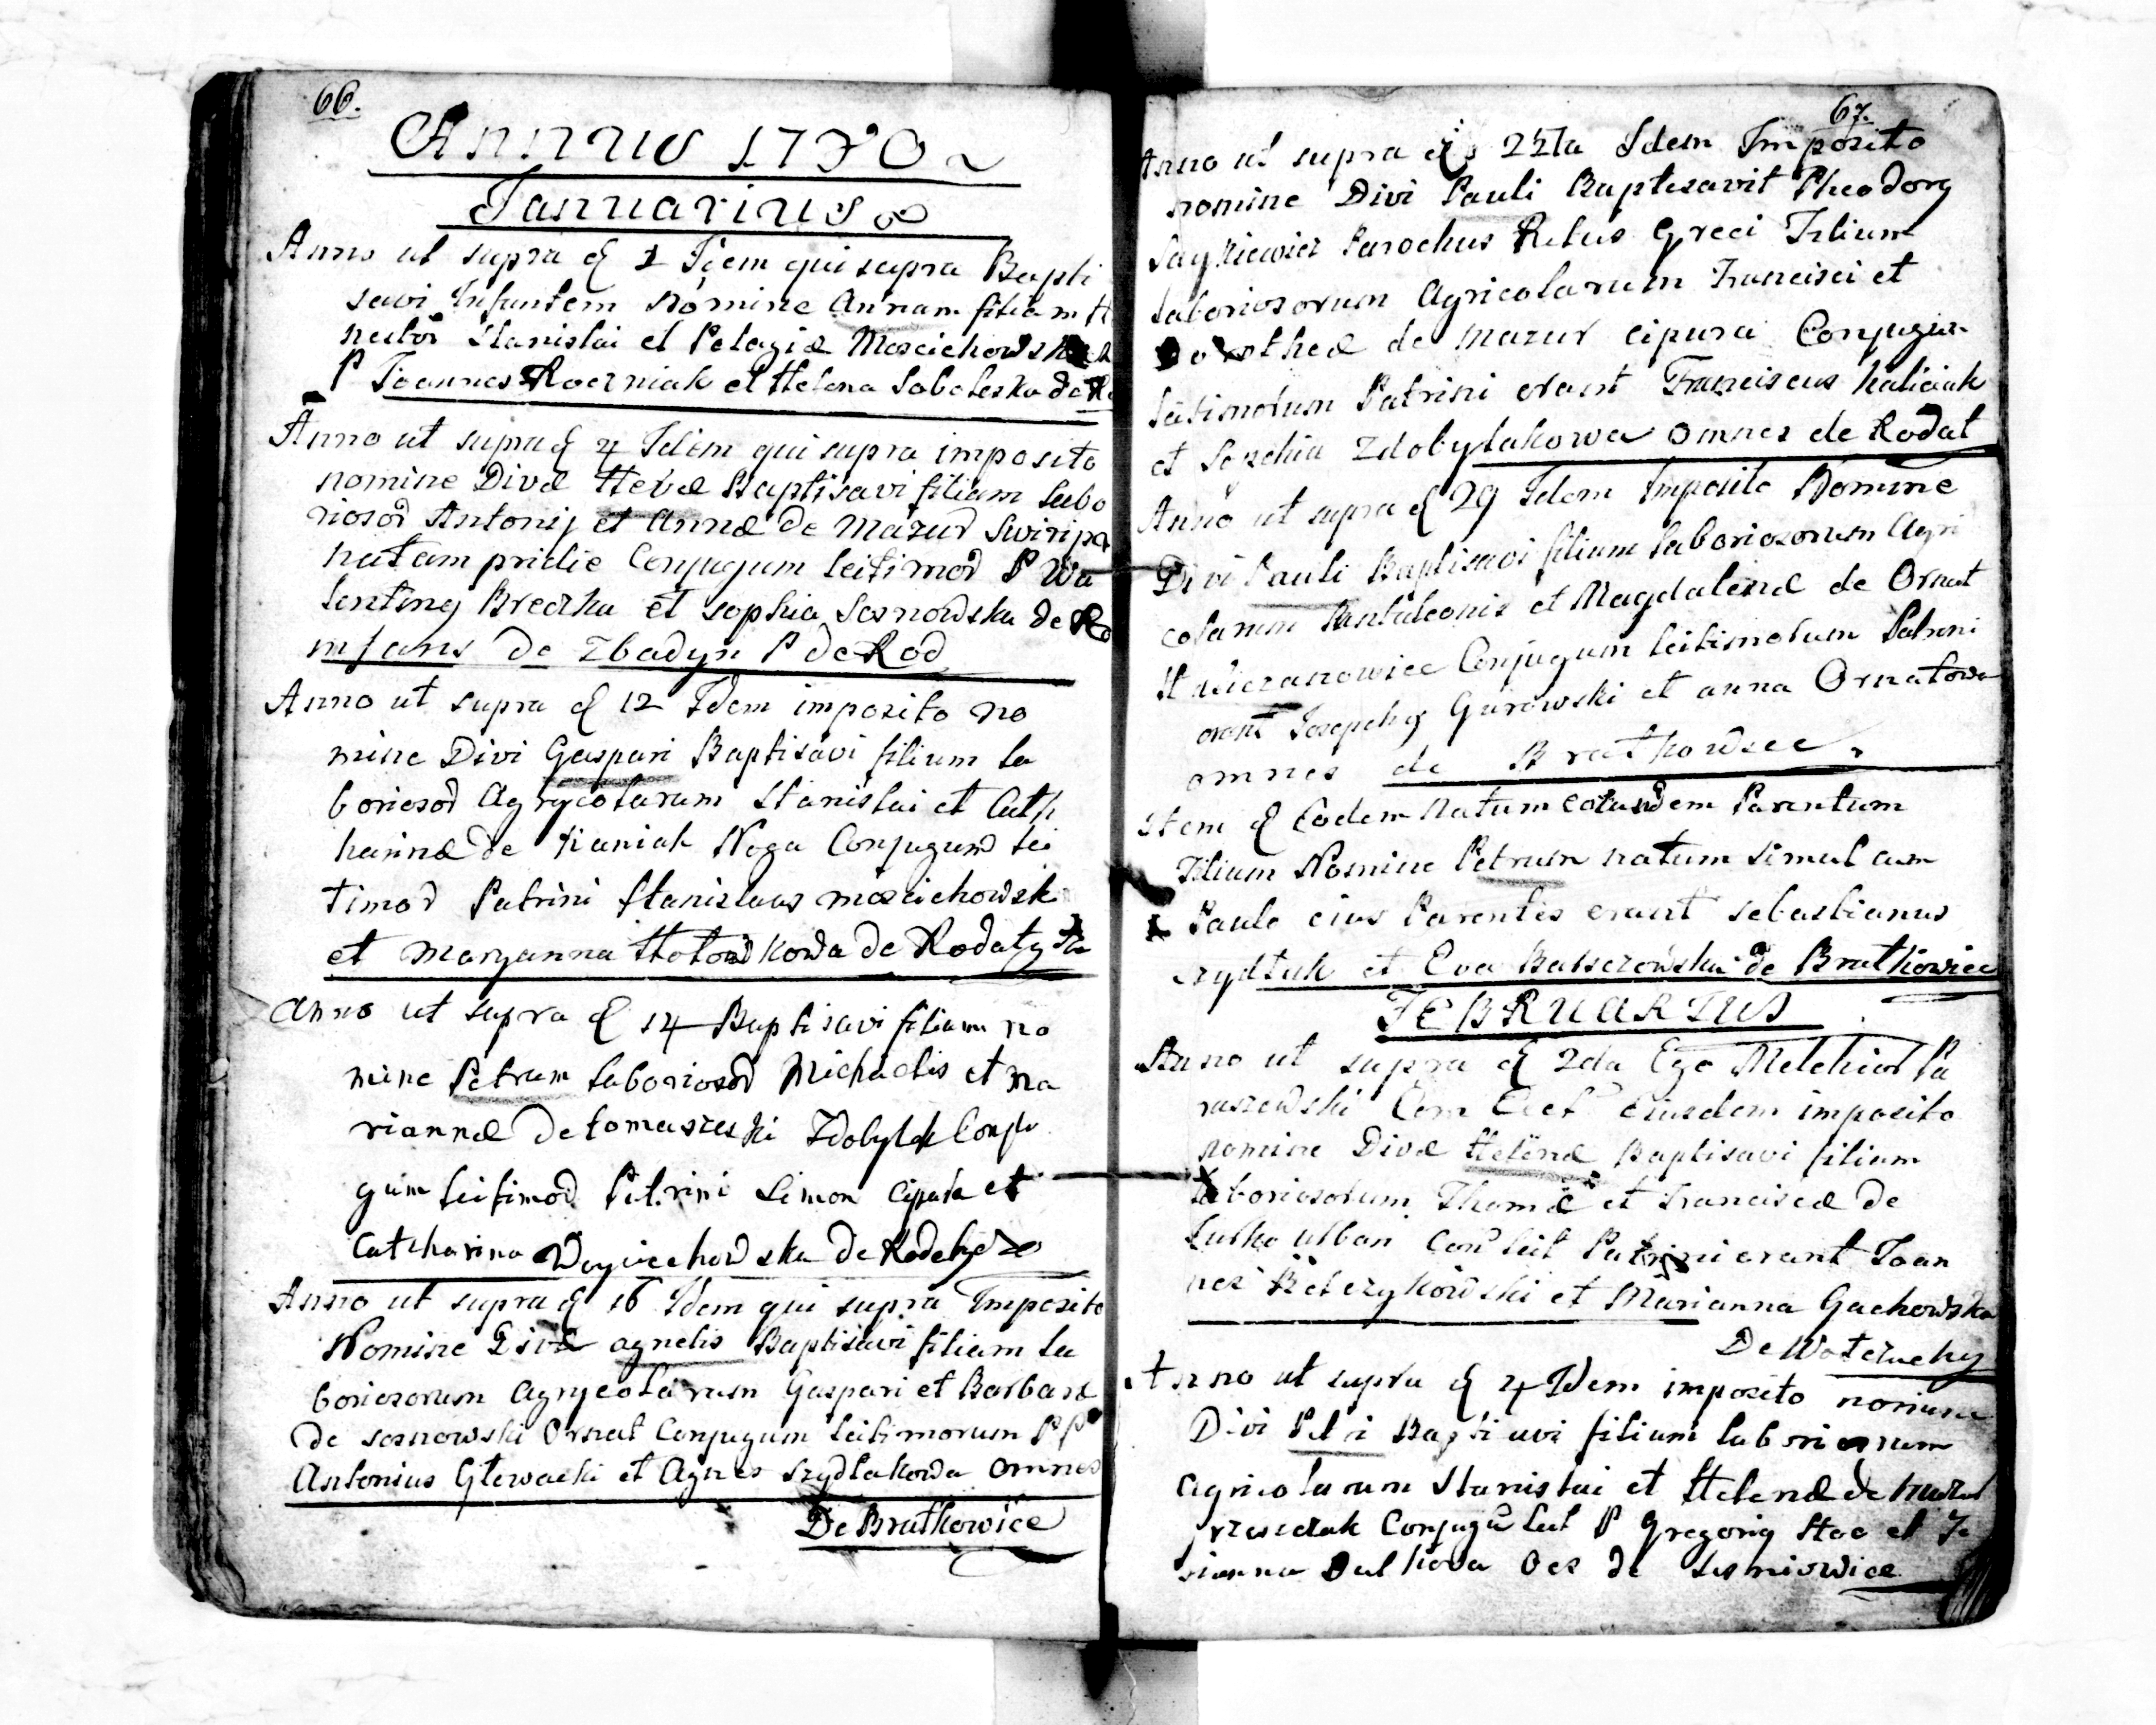 66.
Annus 1730
Januarius
Anno ut supra d 1 Idem qui supra Bapti
savi Infantem Nomine Annam filiam
Stanislai et Pelagiæ
P Joannes Roczniak et Helena Saboleska de
Anno ut supra d 4 Idem qui supra imposito
nomine Divæ Hevæ Baptisavi filiam labo
riosor Antonij et Annæ de Mazur
natam pridie Conjugum leitimor P Wa
lenting Breczka et sophia Sosnowska de Ro
infans de Zbadyn P de Rod
Anno ut supra d 12 Idem imposito no
mine Divi Gaspari Baptisavi filium la
boriosor Agrycolarum Stanislai et Cath
harinæ de Kaniak Noga Conjugum lei
timor Patrini Stanislaus moscichowsk
et Maryanna de Rodaty
Anno ut supra d 14 Baptisavi filium no
mine Petrum laboriosor Michaelis et ma
riannæ de tomaszeski Zdobylak Conju
gum leitimor Patrini Simon Cipura et
Catcharina Woyciechowska de
Anno ut supra d 16 Idem qui supra Imposito
Nomine Divæ agnetis Baptisavi filiam la
boriosorum Agrycolarum Gaspari et Barbaræ
de sosnowski Ornat Conjugum leitimorum PP
Antonius Glewacki et Agnes Szydlakowa omnes
De Bratkowice
67.
Anno ut supra d 22da Idem Imposito
nomine Divi Pauli Baptisavit Theodorg
Parochus Ritus Greci Filium
laboriosorum Agricolarum Francisci et
Dorotheæ de Mazur cipura Conjugum
leitimorum Patrini erant Franciscus haliciak
et Sophia Zdobylakowa omnes de Rodat
Anno ut supra d 29 Idem Imposito Nomine
Divi Pauli Baptisavi filium laboriosorum Agri
colarum Pantaleonis et Magdalenæ de Ornat
Conjugum leitimorum Patrini
erant Josephg Gurowski et anna Ornatowa
omnes de Bratkowice
Item d Eodem Natum eorundem Parentum
Filium Nomine Petrum natum simul cum
Paulo eius Parentes erant sebastianus
szydlak et Eva de Bratkowice
FEBRUARIUS
Anno ut supra d 2da Ego Melchior Pa
raszewski Com Eccl Eiusdem imposito
nomine Divæ Helenæ Baptisavi filiam
laboriosorum Thomæ et Franciscæ de
Lutko urban Con leit Patrini erant Joan
nes et Marianna Gachowska
De
Anno ut supra d 4 Idem imposito nomine
Divi Petri Baptisavi filium laboriosorum
Agricolarum Stanislai et Helenæ de
Conjugu Leit P Gregorig Stec et
Oes de Lesniowice